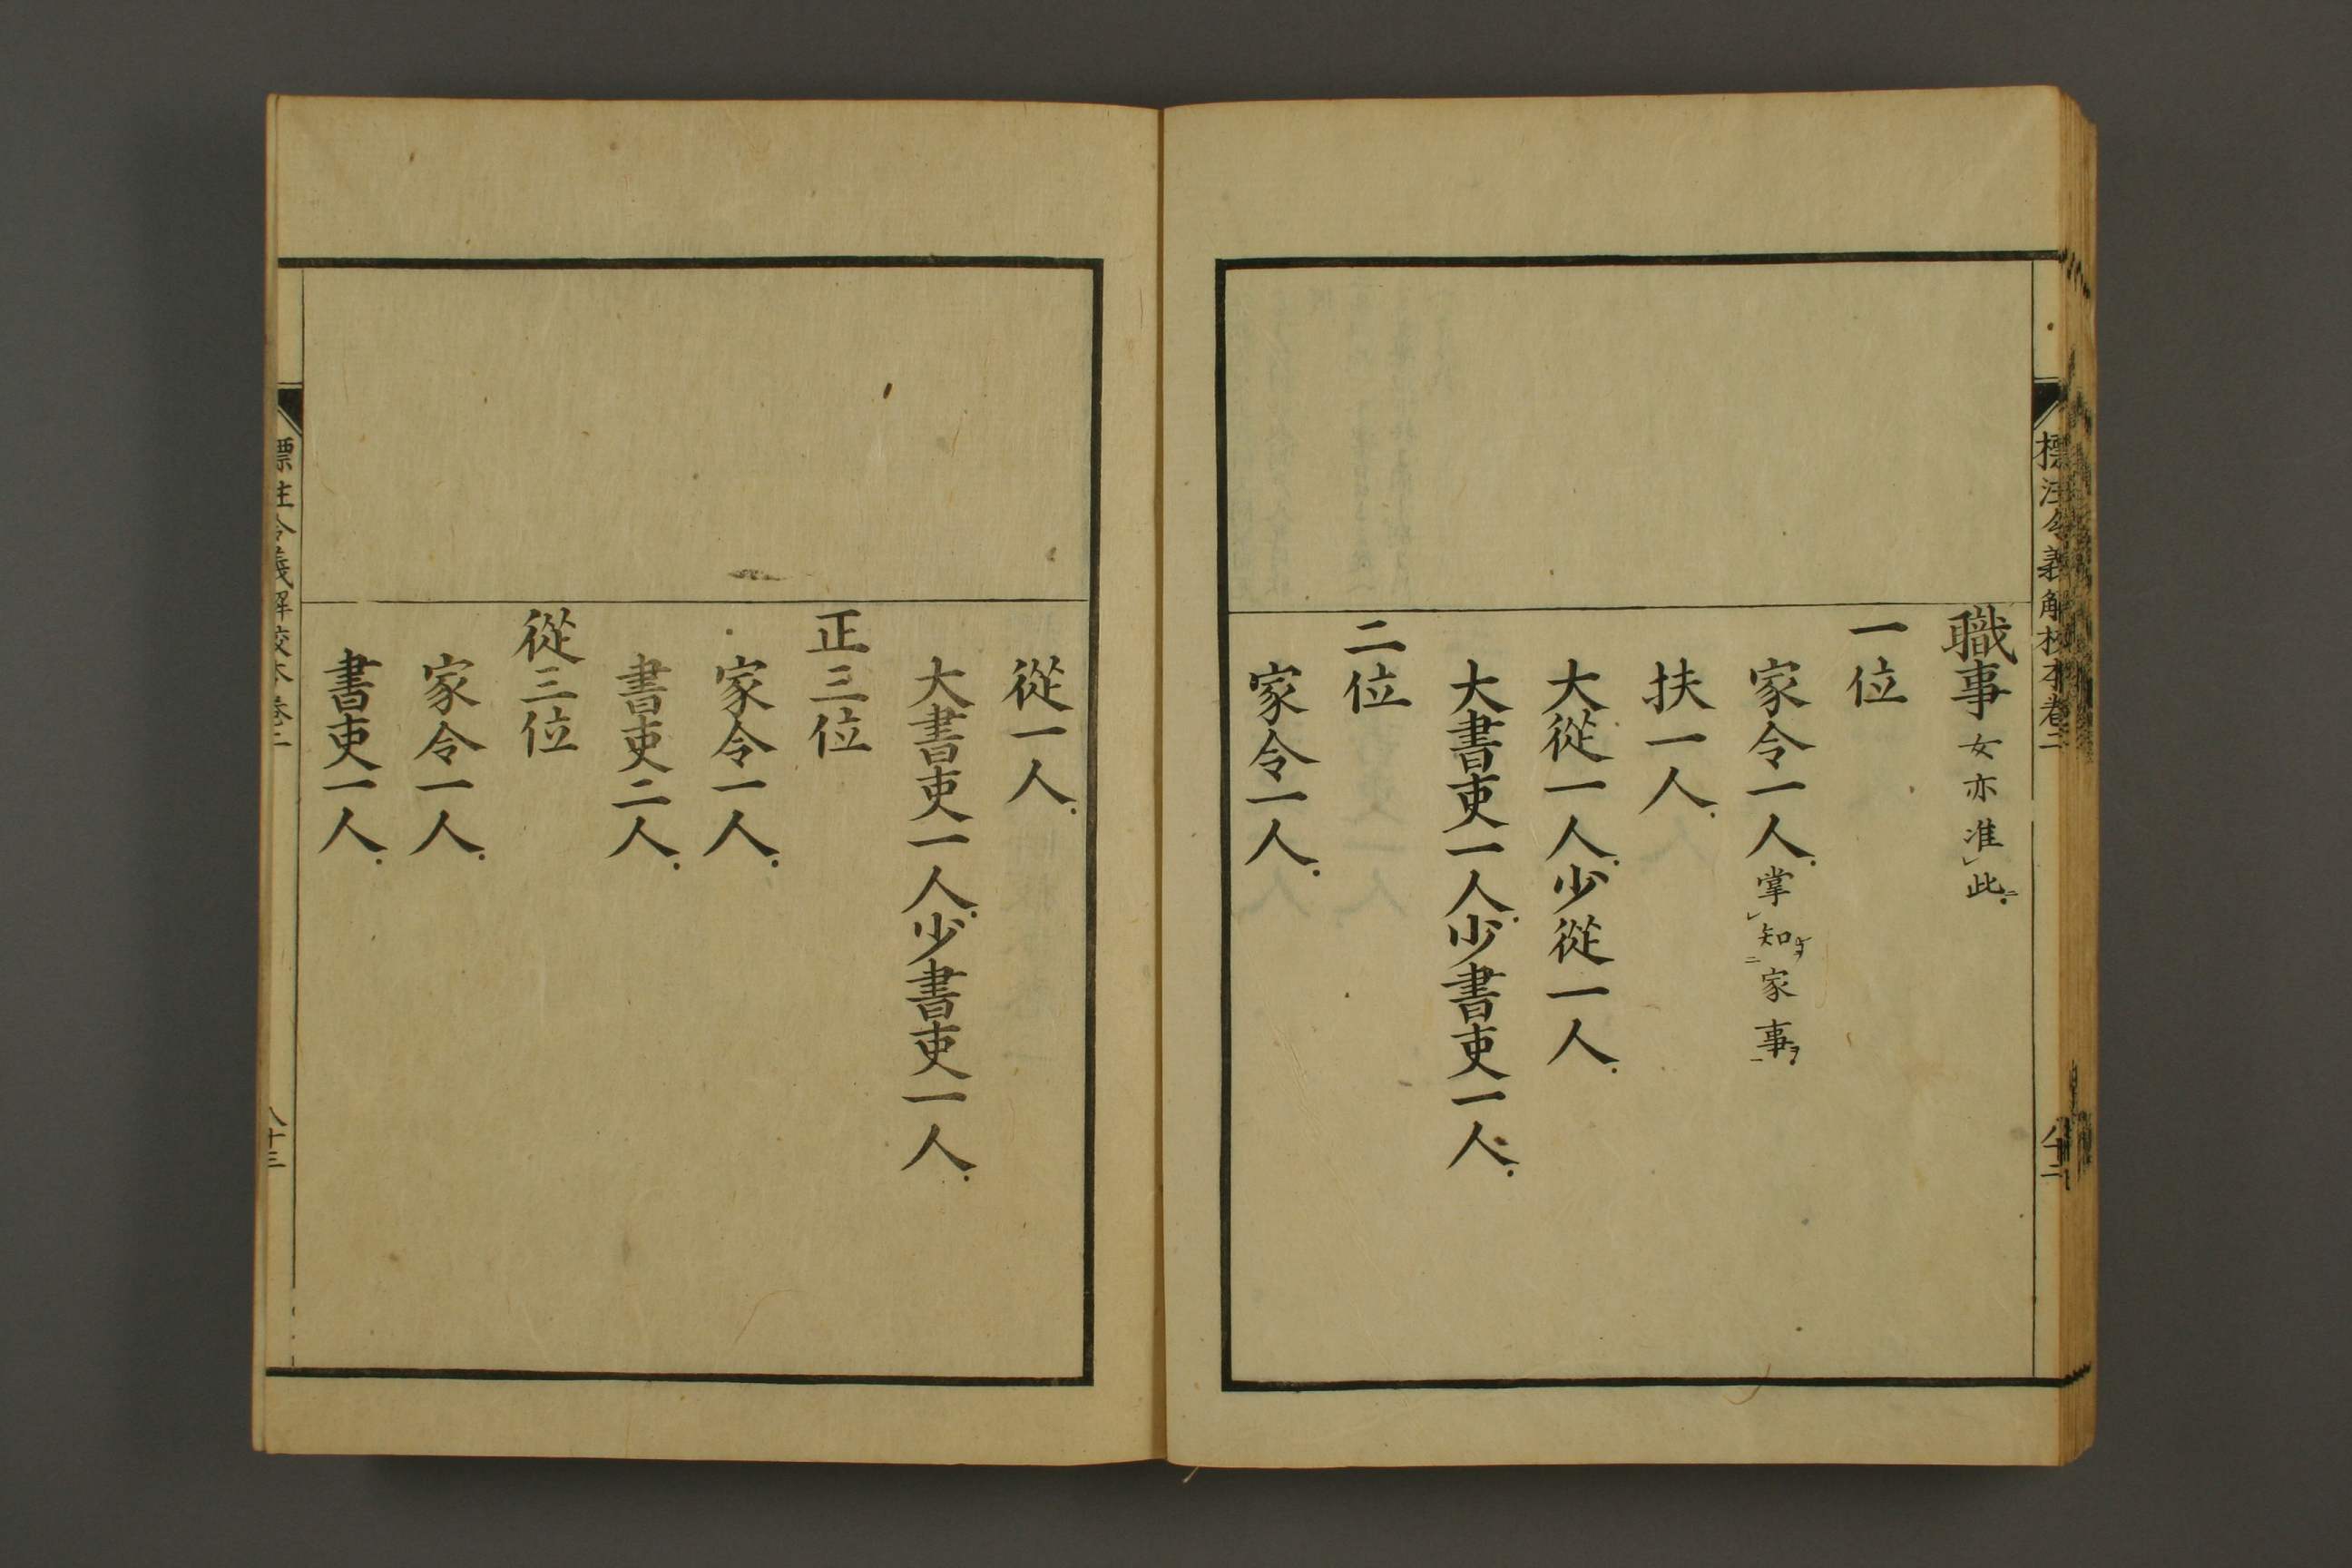 職事女亦准此
一位
家令一人掌知家事
扶一人
大從一人少從一人
大書吏一人少書吏一人
二位
家令一人
從一人
大書吏一人少書吏一人
正三位
家令一人
書吏二人
從三位
家令一人
書吏一人
標注令義解校本卷二
八十三